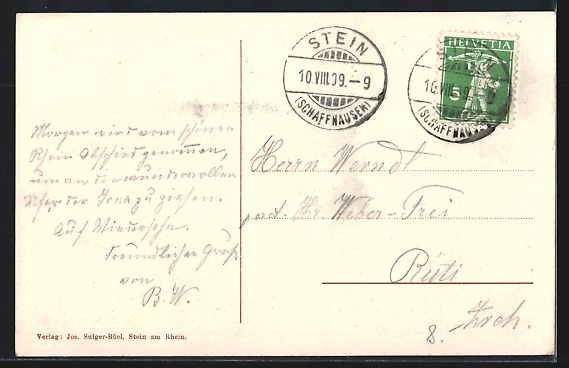 STEIN
10.VIII.09.–9
(SCHAFFHAUSEN)
HELVETIA
5
10.VIII.09.–9
(SCHAFFHAUSEN)
Morgen wird vom schönen
Rhein Abschied genommen,
um an die wundervollen
Ufer der Jona zu ziehen.
Auf Wiedersehn.
Freundlicher Gruß
von
B. W.
Herrn Werndt
adr. Hr. Weber-Frei
Rüti
Zrch.
8.
Verlag: Jos. Sulger-Büel, Stein am Rhein.